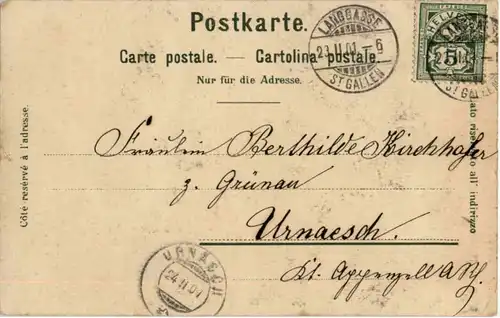 Postkarte.
Carte postale. — Cartolina postale.
Nur für die Adresse.
LANGGASSE
23.II.01.–6
ST GALLEN
HELVETIA
5
Côté reservé à l'adresse.
Lato riservato all' indirizzo
Fräulein Berthilde Kirchhofer
z. Grünau
Urnaesch.
Kt. Appenzell A. Rh.
URNÄSCH
24.II.01